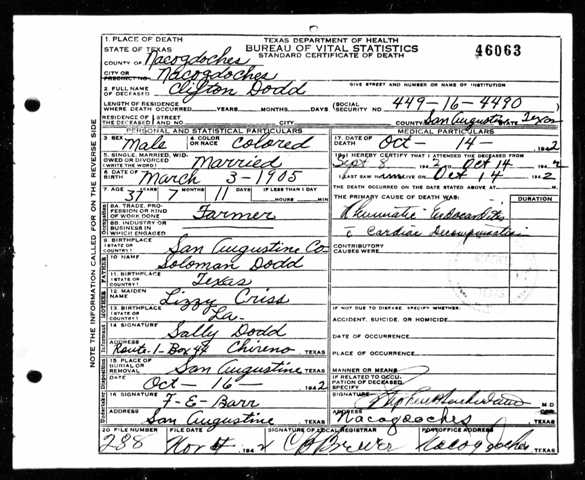 TEXAS DEPARTMENT OF HEALTH
BUREAU OF VITAL STATISTICS
STANDARD CERTIFICATE OF DEATH
46063
1. PLACE OF DEATH
STATE OF TEXAS
COUNTY OF Nacogdoches
CITY OR PRECINCT NO. Nacogdoches
GIVE STREET AND NUMBER OR NAME OF INSTITUTION
2. FULL NAME OF DECEASED Clifton Dodd
LENGTH OF RESIDENCE WHERE DEATH OCCURRED YEARS MONTHS DAYS (SOCIAL SECURITY NO. 449-16-4490
RESIDENCE OF THE DECEASED STREET AND NO. CITY COUNTY San Augustine STATE Texas
PERSONAL AND STATISTICAL PARTICULARS
3. SEX Male
4. COLOR OR RACE Colored
5. SINGLE, MARRIED, WIDOWED OR DIVORCED (WRITE THE WORD) Married
6. DATE OF BIRTH March 3-1905
7. AGE 37 YEARS 7 MONTHS 11 DAYS IF LESS THAN 1 DAY HOURS MIN
8A. TRADE, PROFESSION OR KIND OF WORK DONE Farmer
8B. INDUSTRY OR BUSINESS IN WHICH ENGAGED
9. BIRTHPLACE (STATE OR COUNTRY) San Augustine Co
10 NAME Soloman Dodd
11. BIRTHPLACE (STATE OR COUNTRY) Texas
12 MAIDEN NAME Lizzy Criss
13. BIRTHPLACE (STATE OR COUNTRY) La-
14 SIGNATURE Sally Dodd
ADDRESS Route-1-Box 44 Chireno TEXAS
15 PLACE OF BURIAL OR REMOVAL San Augustine TEXAS
DATE Oct-16- 1942
16 SIGNATURE F-E-Barr
ADDRESS San Augustine, TEXAS
MEDICAL PARTICULARS
17. DATE OF DEATH Oct- 14- 1942
18. I HEREBY CERTIFY THAT I ATTENDED THE DECEASED FROM
Sept 8 1942 TO Oct 14 194
I LAST SAW him ALIVE ON Oct 14 1942
THE DEATH OCCURRED ON THE DATE STATED ABOVE AT M.
THE PRIMARY CAUSE OF DEATH WAS: DURATION
Rheumatic Endocarditis
c Cardiac Decompensation
CONTRIBUTORY CAUSES WERE.
IF NOT DUE TO DISEASE, SPECIFY WHETHER:
ACCIDENT, SUICIDE, OR HOMICIDE.
DATE OF OCCURRENCE
PLACE OF OCCURRENCE
MANNER OR MEANS
IF RELATED TO OCCUPATION OF DECEASED, SPECIFY
SIGNATURE M.D.
ADDRESS Nacogdoches, TEXAS
20 FILE NUMBER 288
FILE DATE Nov 4 194
SIGNATURE OF LOCAL REGISTRAR C B Brewer
POSTOFFICE ADDRESS Nacogdoches TEXAS
NOTE THE INFORMATION CALLED FOR ON THE REVERSE SIDE